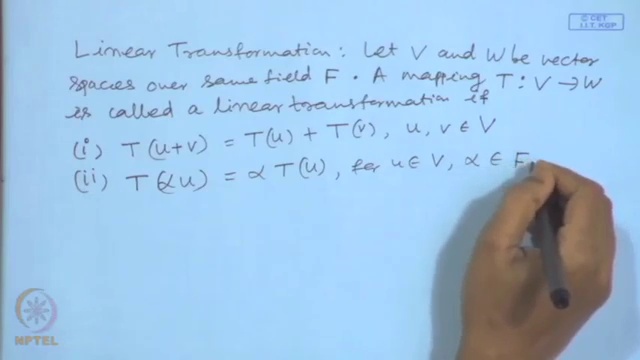 © CET
I.I.T. KGP
Linear Transformation: Let V and W be vector
spaces over same field F. A mapping T: V → W
is called a linear transformation if
(i) T(u+v) = T(u) + T(v), u, v ∈ V
(ii) T(αu) = α T(u), for u ∈ V, α ∈ F,
NPTEL